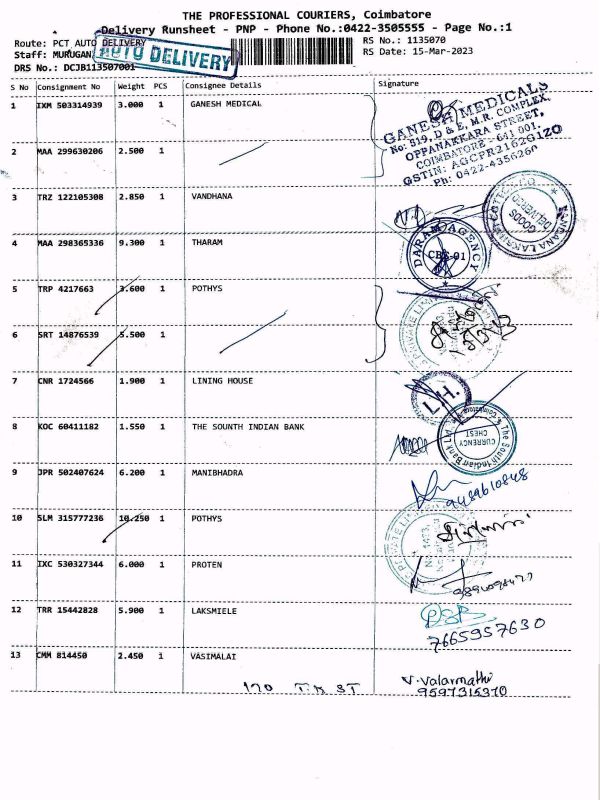 THE PROFESSIONAL COURIERS, Coimbatore
Delivery Runsheet - PNP - Phone No.:0422-3505555 - Page No.:1
Route: PCT AUTO DELIVERY
AUTO DELIVERY
RS No.: 1135070
Staff: MURUGAN
RS Date: 15-Mar-2023
DRS No.: DCJB113507001
S No Consignment No Weight PCS Consignee Details Signature
1 IXM 503314939 3.000 1 GANESH MEDICAL
GANESH MEDICALS
No: 519, D & E, M.R. COMPLEX,
OPPANAKKARA STREET,
COIMBATORE - 641 001.
GSTIN: AGCPR2162G1ZO
Ph: 0422-4356260
2 MAA 299630206 2.500 1
3 TRZ 122105308 2.850 1 VANDHANA
GOODS
DELIVERED
4 MAA 298365336 9.300 1 THARAM
DARAM AGENCY
CBE-01
5 TRP 4217663 3.600 1 POTHYS
PRIVATE LIMITED
6 SRT 14876539 5.500 1
7 CNR 1724566 1.900 1 LINING HOUSE
L.H.
8 KOC 60411182 1.550 1 THE SOUNTH INDIAN BANK
The South Indian Bank Ltd.
CURRENCY
CHEST
9 JPR 502407624 6.200 1 MANIBHADRA
9489610848
10 SLM 315777236 10.250 1 POTHYS
PRIVATE LIMITED
11 IXC 530327344 6.000 1 PROTEN
12 TRR 15442828 5.900 1 LAKSMIELE
7665957630
13 CMM 814450 2.450 1 VASIMALAI
170 T.K ST
V. Valarmathi
9597315370